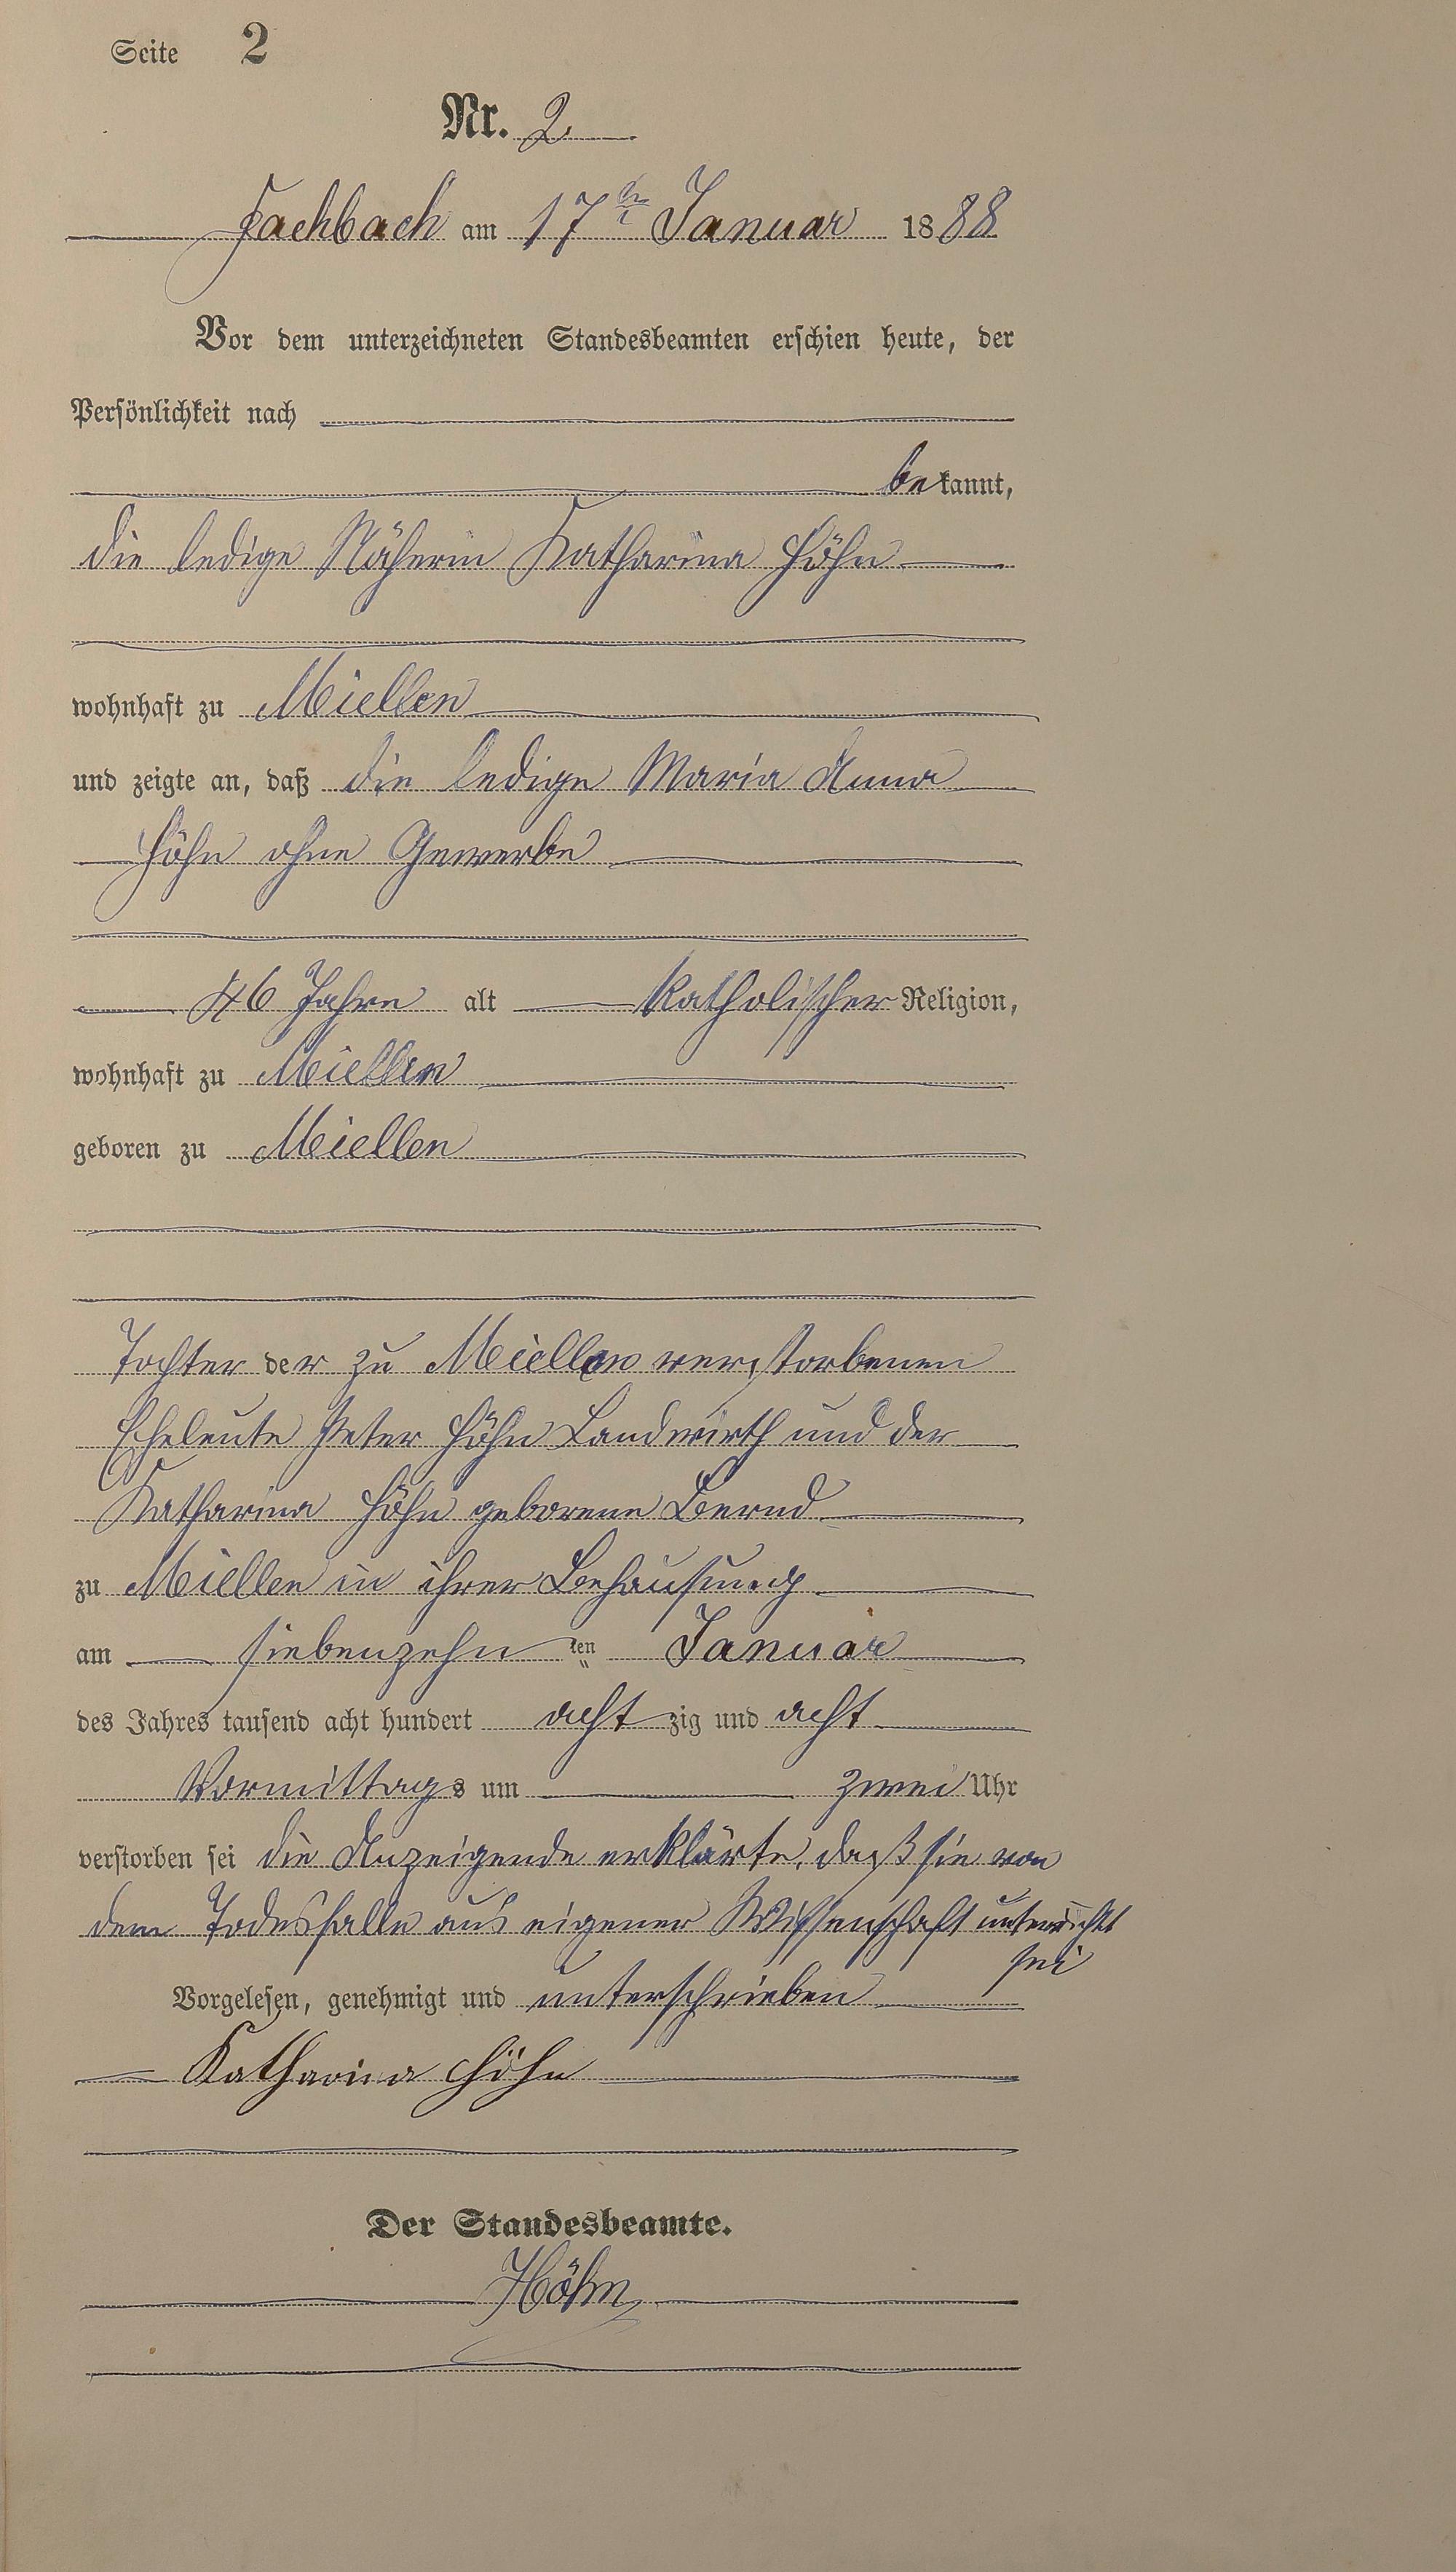 Seite 2
Nr. 2.
Fachbach am 17ten Januar 1888
Vor dem unterzeichneten Standesbeamten erschien heute, der
Persönlichkeit nach
bekannt,
die ledige Näherin Katharina Höhn
wohnhaft zu Miellen
und zeigte an, daß die ledige Maria Anna
Höhn ohne Gewerbe
46 Jahre alt katholischer Religion,
wohnhaft zu Miellen
geboren zu Miellen
Tochter der zu Miellen verstorbenen
Eheleute Peter Höhn Landwirth und der
Katharina Höhn geborene Bernd
zu Miellen in ihrer Behausung
am siebenzehnten Januar
des Jahres tausend acht hundert achtzig und acht
Vormittags um zwei Uhr
verstorben sei die Anzeigende erklärte, daß sie von
dem Todesfalle aus eigener Wissenschaft unterrichtet
sei
Vorgelesen, genehmigt und unterschrieben
Katharina Höhn
Der Standesbeamte.
Höhn